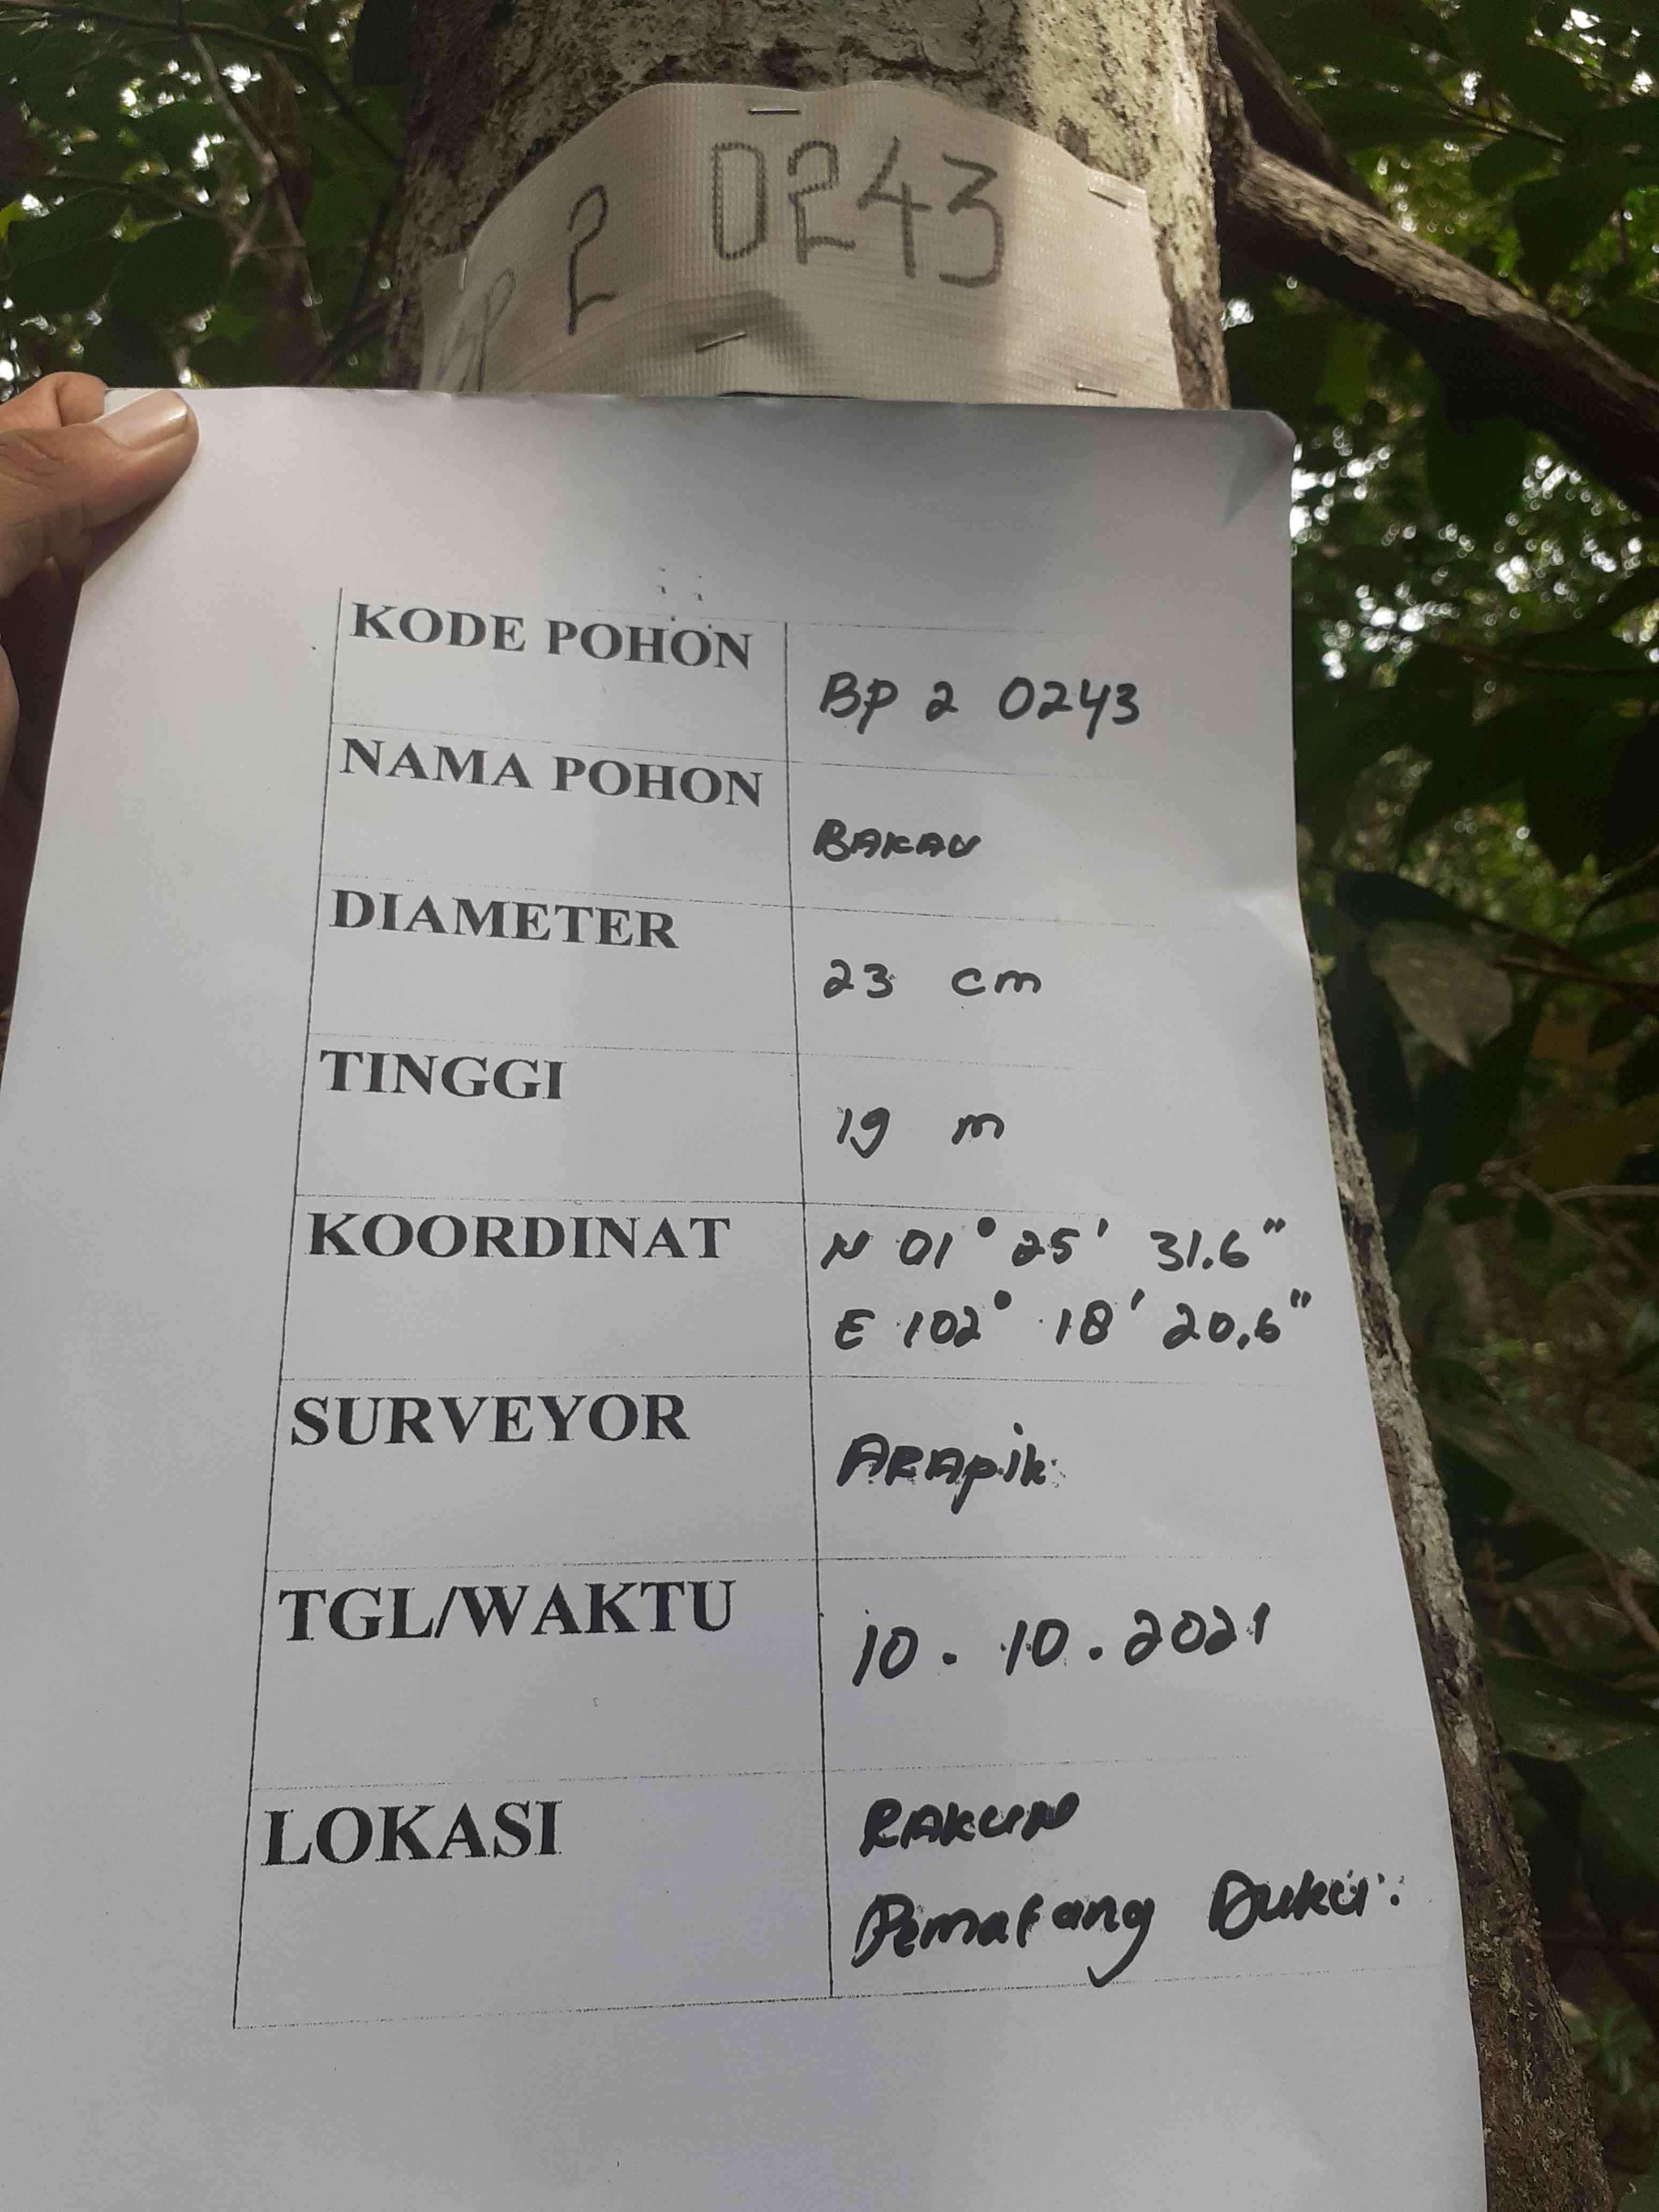 BP 2 0243
KODE POHON BP 2 0243
NAMA POHON BAKAU
DIAMETER 23 cm
TINGGI 19 m
KOORDINAT N 01° 25' 31.6"
E 102° 18' 20,6"
SURVEYOR ARApik
TGL/WAKTU 10.10.2021
LOKASI RAKUN
Pematang Duku.